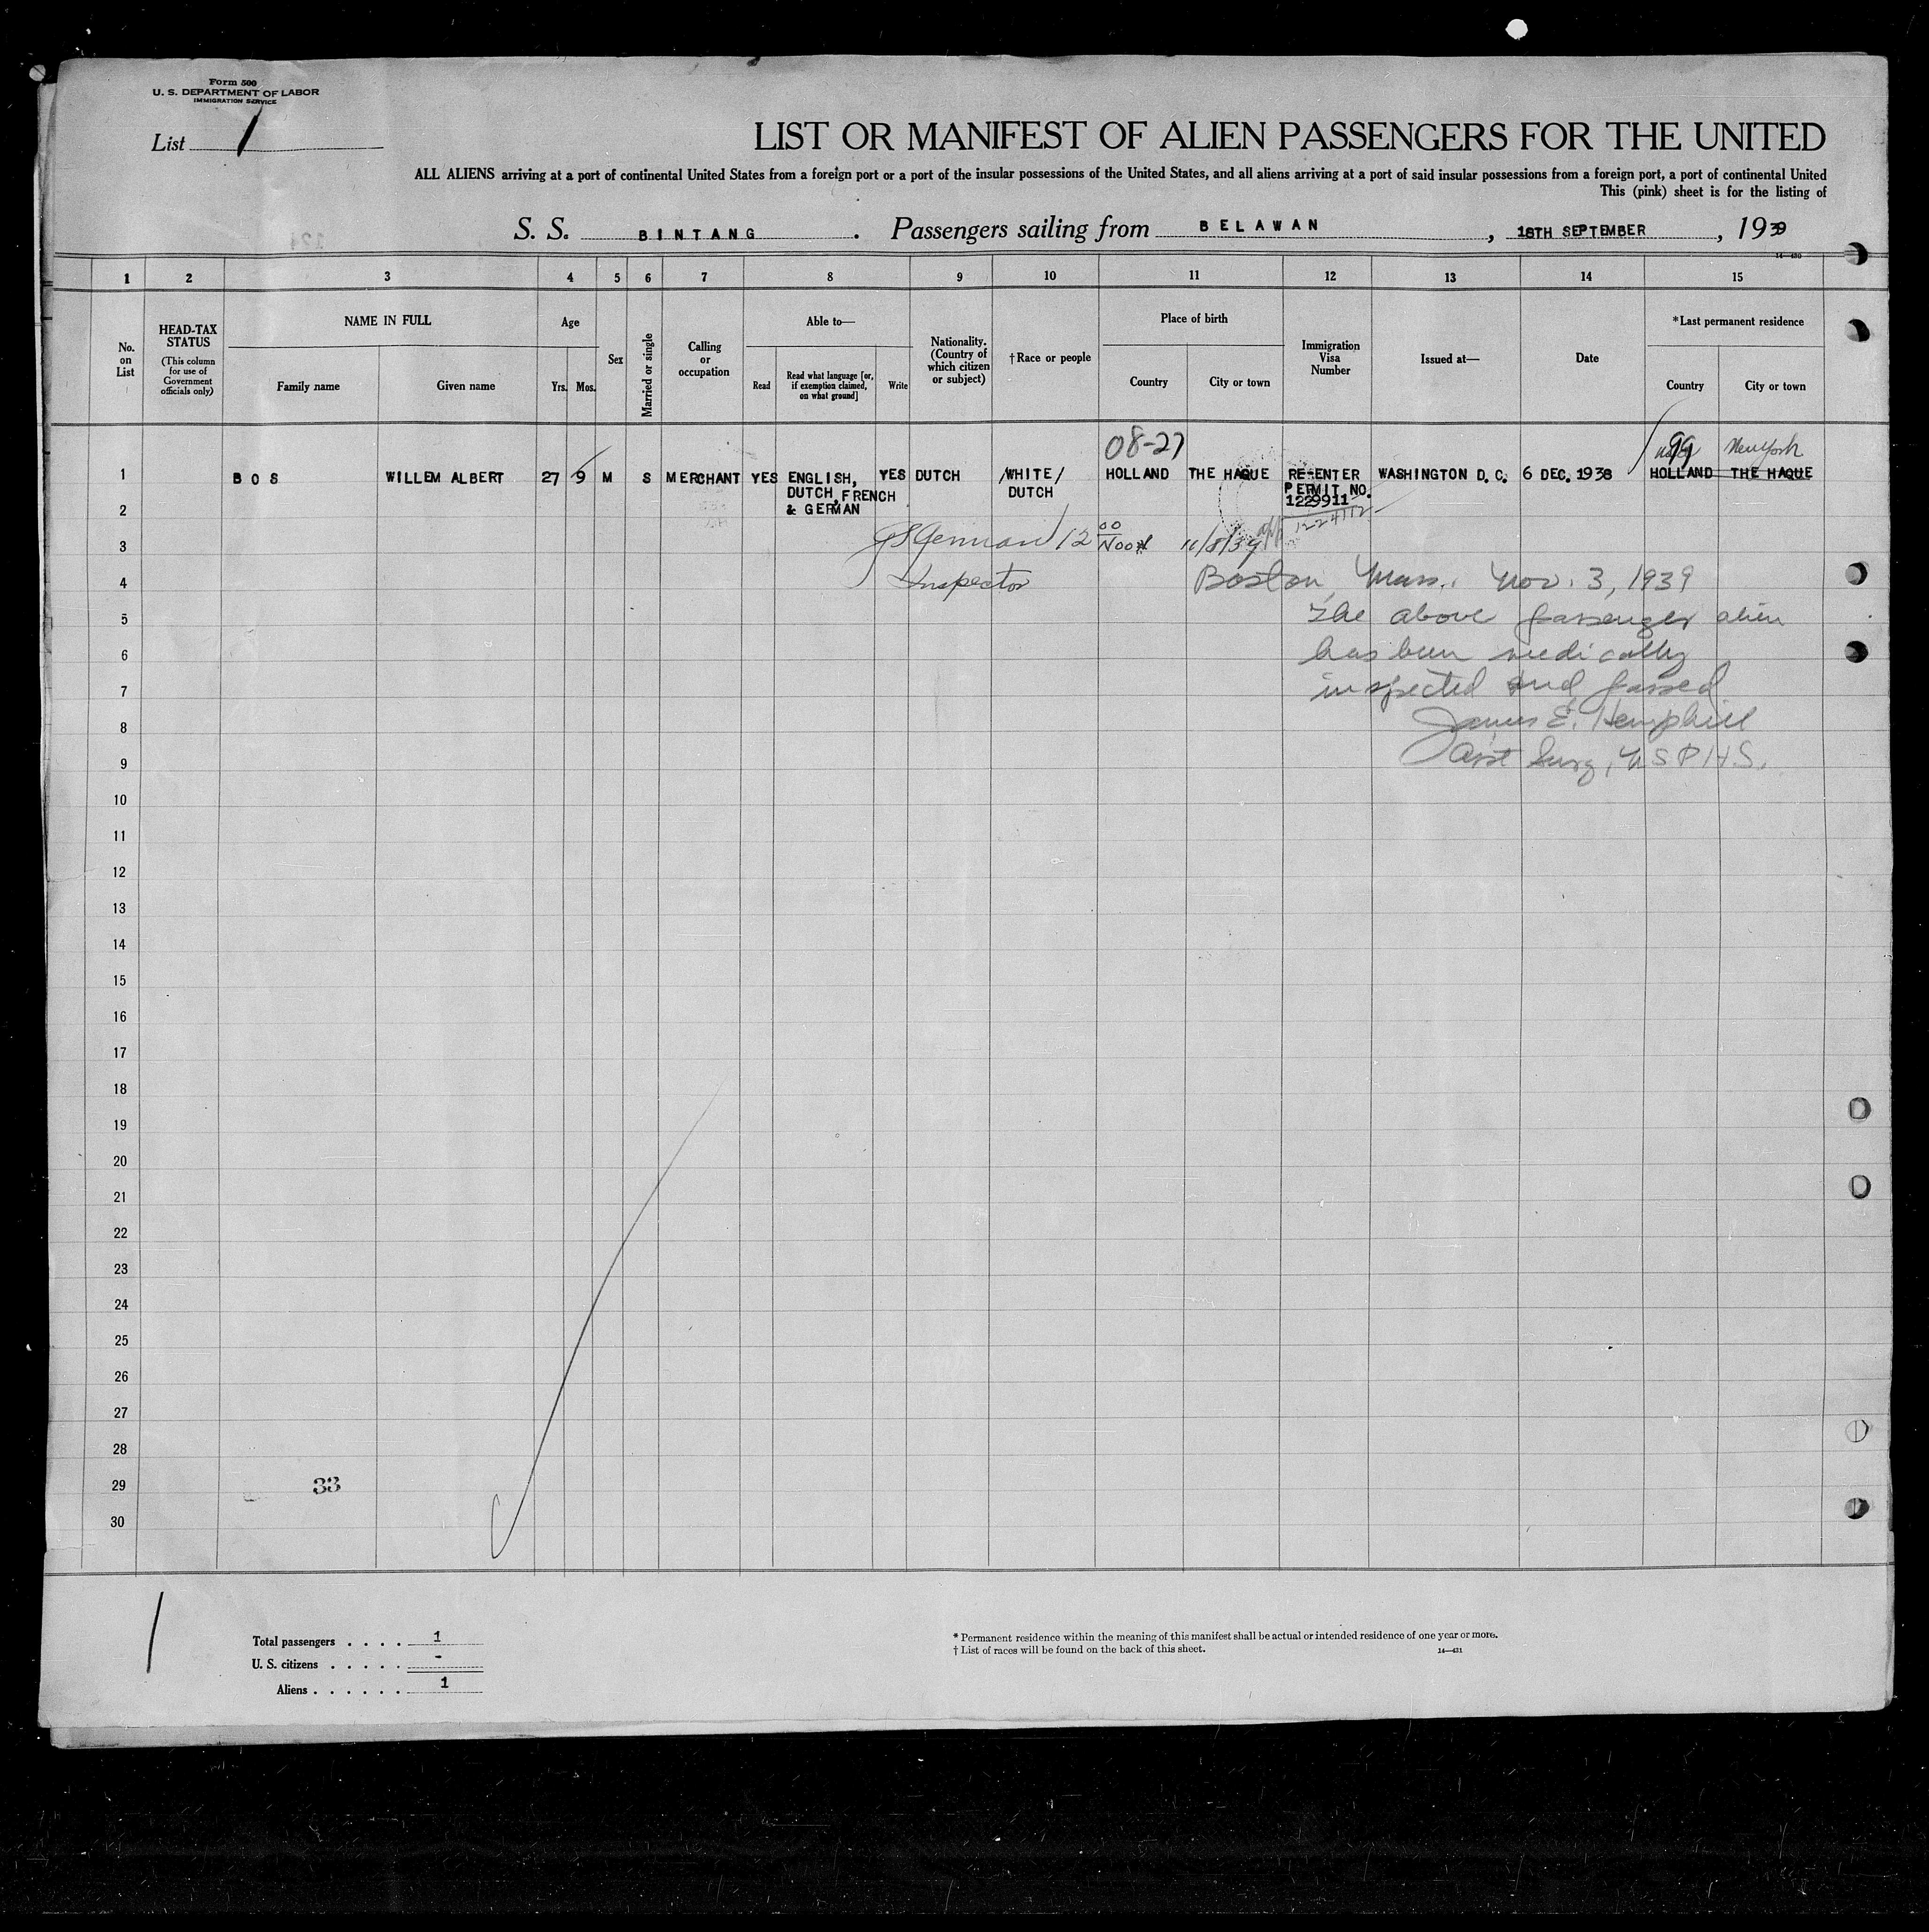 Form 500
U. S. DEPARTMENT OF LABOR
IMMIGRATION SERVICE
List 1
LIST OR MANIFEST OF ALIEN PASSENGERS FOR THE UNITED
ALL ALIENS arriving at a port of continental United States from a foreign port or a port of the insular possessions of the United States, and all aliens arriving at a port of said insular possessions from a foreign port, a port of continental United
This (pink) sheet is for the listing of
S. S. BINTANG . Passengers sailing from BELAWAN , 18TH SEPTEMBER , 1939
14—430
1 2 3 4 5 6 7 8 9 10 11 12 13 14 15
No. on List
HEAD-TAX STATUS
(This column for use of Government officials only)
NAME IN FULL
Family name Given name
Age
Yrs. Mos.
Sex
Married or single
Calling or occupation
Able to—
Read
Read what language [or, if exemption claimed, on what ground]
Write
Nationality. (Country of which citizen or subject)
†Race or people
Place of birth
Country City or town
Immigration Visa Number
Issued at—
Date
*Last permanent residence
Country City or town
08-27 99 New York
1 BOS WILLEM ALBERT 27 9 M S MERCHANT YES ENGLISH, YES DUTCH /WHITE/ HOLLAND THE HAQUE RE-ENTER WASHINGTON D.C. 6 DEC. 1938 HOLLAND THE HAQUE
DUTCH, FRENCH DUTCH PERMIT NO.
2 & GERMAN 1229911
1224112
3 12 00 Noon 11/8/39
4 Inspector Boston, Mass. Nov. 3, 1939
5 The above passenger alien
6 has been medically
7 inspected and passed
8 James E. Hemphill
9 Asst Surg, USPHS.
10
11
12
13
14
15
16
17
18
19
20
21
22
23
24
25
26
27
28
29 33
30
Total passengers . . . . 1
U. S. citizens . . . . . -
Aliens . . . . . . 1
* Permanent residence within the meaning of this manifest shall be actual or intended residence of one year or more.
† List of races will be found on the back of this sheet.
14—431